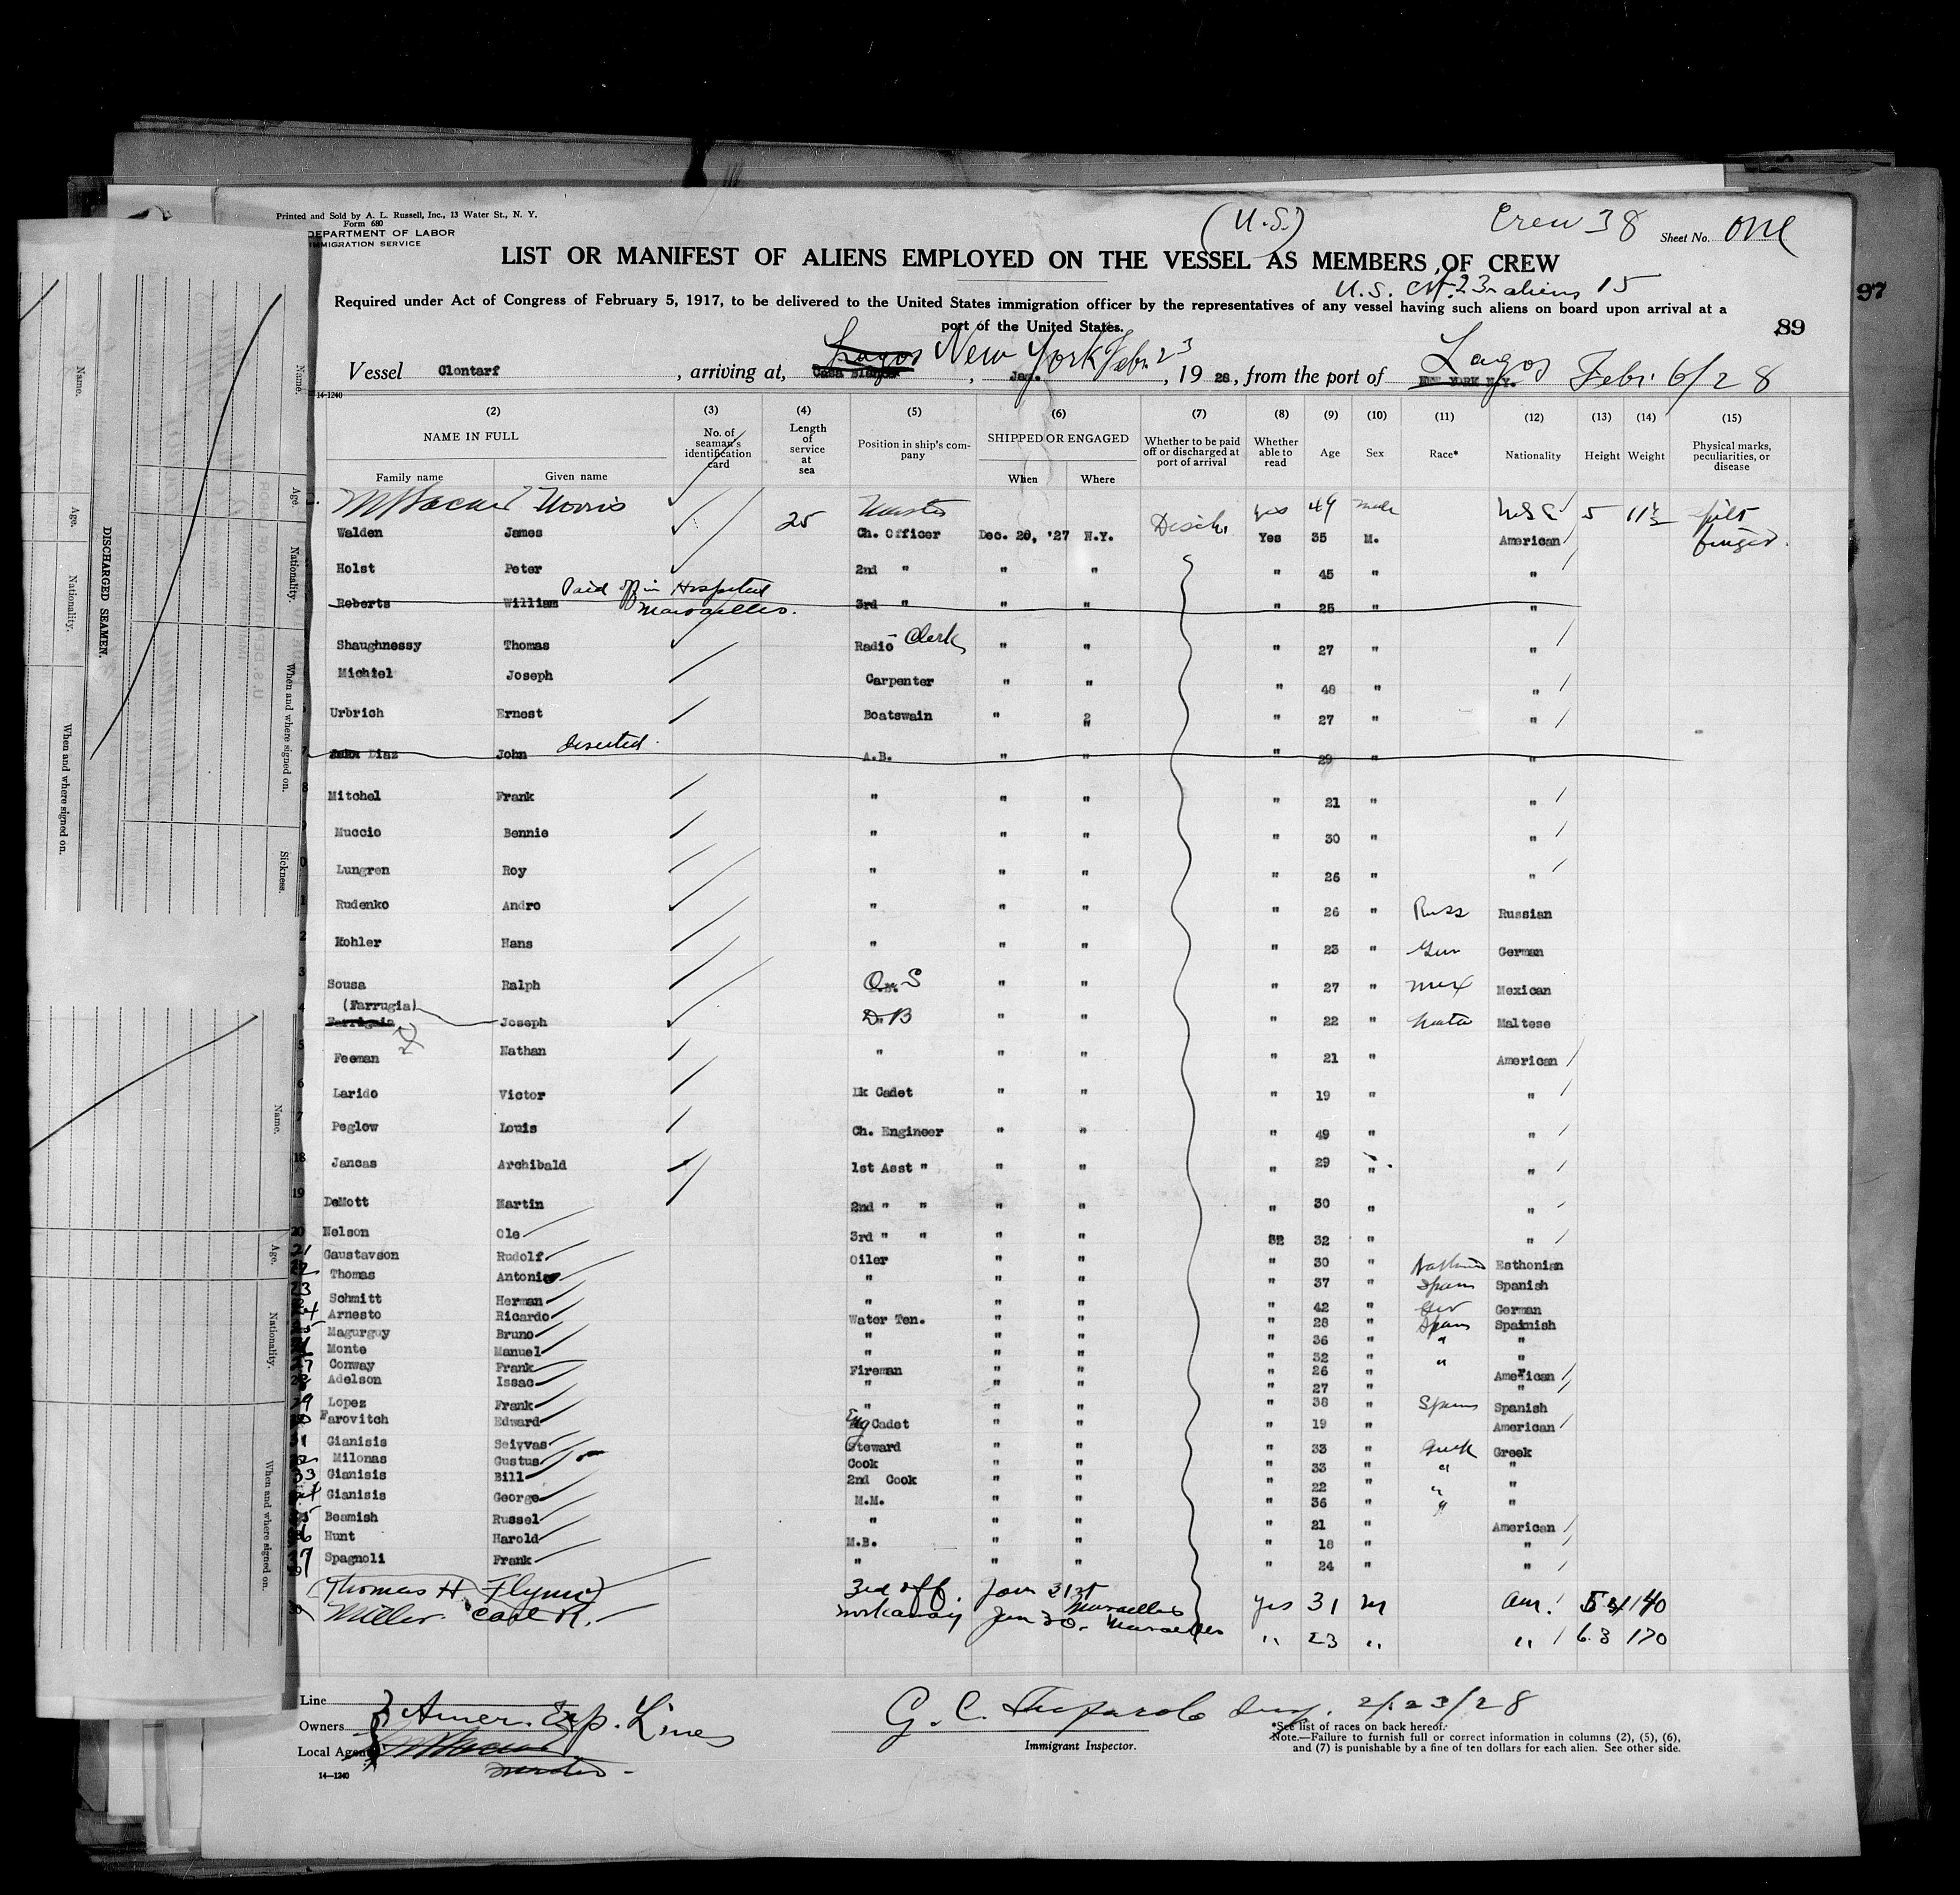 Printed and Sold by A. L. Russell, Inc., 13 Water St., N. Y.
Form 680
DEPARTMENT OF LABOR
IMMIGRATION SERVICE
(U.S.)
Crew 38
Sheet No. One
LIST OR MANIFEST OF ALIENS EMPLOYED ON THE VESSEL AS MEMBERS OF CREW
U.S. cit. 23 aliens 15
Required under Act of Congress of February 5, 1917, to be delivered to the United States immigration officer by the representatives of any vessel having such aliens on board upon arrival at a
port of the United States.
97
89
Vessel Clontarf, arriving at, Lagos New York Feby 23, Jan. , 19 28, from the port of Lagos NEW YORK N.Y. Feb. 6/28
14-1240
(2) (3) (4) (5) (6) (7) (8) (9) (10) (11) (12) (13) (14) (15)
NAME IN FULL
Family name Given name
No. of seaman's identification card
Length of service at sea
Position in ship's company
SHIPPED OR ENGAGED
When Where
Whether to be paid off or discharged at port of arrival
Whether able to read
Age
Sex
Race*
Nationality
Height
Weight
Physical marks, peculiarities, or disease
Norris 25 Master Disch. yes 49 male 5 11½ finger
Walden James Ch. Officer Dec. 20, '27 N.Y. Yes 35 M. American
Holst Peter 2nd " " " " 45 " "
Roberts William Paid off in Hospital Marseilles. 3rd " " " " 25 " "
Shaughnessy Thomas Radio Clerk " " " 27 " "
Michiel Joseph Carpenter " " " 48 " "
Urbrich Ernest Boatswain " " " 27 " "
Diaz John deserted. A.B. " " " 29 " "
Mitchel Frank " " " " 21 " "
Muccio Bennie " " " " 30 " "
Lungren Roy " " " " 26 " "
Rudenko Andro " " " " 26 " Russ Russian
Kohler Hans " " " " 23 " Ger German
Sousa Ralph O.S " " " 27 " Mex Mexican
(Farrugia)
Farrigaia Joseph D.B " " " 22 " Malta Maltese
Feeman Nathan " " " " 21 " American
Larido Victor Dk Cadet " " " 19 " "
Peglow Louis Ch. Engineer " " " 49 " "
18 Jancas Archibald 1st Asst " " " " 29 " "
19 DeMott Martin 2nd " " " " " 30 " "
20 Nelson Ole 3rd " " " " 32 32 " "
21 Gaustavson Rudolf Oiler " " " 30 " Esthonian
22 Thomas Antonio " " " " 37 " Span Spanish
23 Schmitt Herman " " " " 42 " Ger German
24 Arnesto Ricardo Water Ten. " " " 28 " Span Spainish
Magurgoy Bruno " " " " 36 " " "
Monte Manuel " " " " 32 " " "
27 Conway Frank Fireman " " " 26 " American
28 Adelson Issac " " " " 27 " "
29 Lopez Frank " " " " 38 " Span Spanish
30 Farovitch Edward Eng Cadet " " " 19 " American
31 Gianisis Seivvas Steward " " " 33 " Greek Greek
32 Milonas Gustus Cook " " " 33 " " "
33 Gianisis Bill 2nd Cook " " " 22 " " "
34 Gianisis George M.M. " " " 36 " " "
35 Beamish Russel " " " " 21 " American
36 Hunt Harold M.B. " " " 18 " "
37 Spagnoli Frank " " " " 24 " "
(Thomas H. Flynn) 3rd off. Jan 31st Marseilles yes 31 M Am. 140
Miller Carl R. workaway Jan 30. Marseilles " 23 " " 6.3 170
Line
Owners Amer. Exp. Lines
Local Agent
Master
14—1240
G. C. Insp. 2/23/28
Immigrant Inspector.
*See list of races on back hereof.
Note.—Failure to furnish full or correct information in columns (2), (5), (6),
and (7) is punishable by a fine of ten dollars for each alien. See other side.
DISCHARGED SEAMEN.
Name.
Age.
Nationality.
When and where signed on.
Name.
Age.
Nationality.
When and where signed on.
Sickness.
Name.
Age.
Nationality.
When and where signed on.